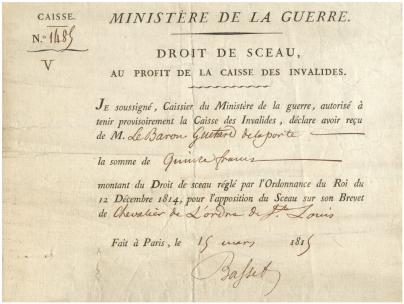 CAISSE.
N.° 1485
V
MINISTÈRE DE LA GUERRE.
DROIT DE SCEAU,
AU PROFIT DE LA CAISSE DES INVALIDES.
JE soussigné, Caissier du Ministère de la guerre, autorisé à
tenir provisoirement la Caisse des Invalides, déclare avoir reçu
de M. Le Baron Guittard de la porte
la somme de Quinze francs
montant du Droit de sceau réglé par l'Ordonnance du Roi du
12 Décembre 1814, pour l'apposition du Sceau sur son Brevet
de Chevalier de L'ordre de St. Louis
Fait à Paris, le 15 mars 1815
Basset